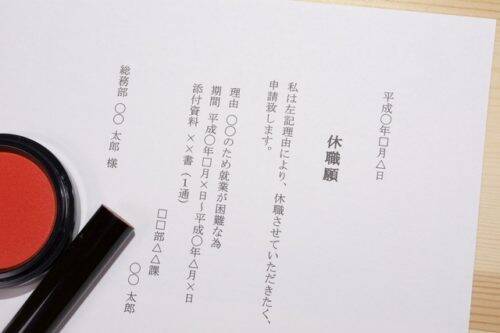 平成〇年□月△日
休職願
私は左記理由により、休職させていただきたく、
申請致します。
理由 〇〇のため就業が困難な為
期間 平成〇年□月×日～平成〇年△月×日
添付資料 ××書（1通）
□□部△△課
〇〇 太郎
総務部 〇〇 太郎 様